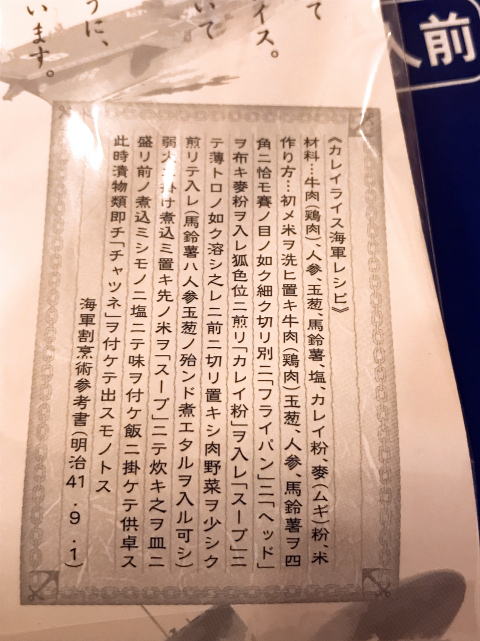 人前
て
イス。
いて
うに、
います。
《カレイライス海軍レシピ》
材料…牛肉(鶏肉)、人参、玉葱、馬鈴薯、塩、カレイ粉、麥(ムギ)粉、米
作り方…初メ米ヲ洗ヒ置キ牛肉(鶏肉)玉葱、人参、馬鈴薯ヲ四
角ニ恰モ賽ノ目ノ如ク細ク切リ別ニ「フライパン」ニ「ヘッド」
ヲ布キ麥粉ヲ入レ狐色位ニ煎リ「カレイ粉」ヲ入レ「スープ」ニ
テ薄トロノ如ク溶シ之レニ前ニ切リ置キシ肉野菜ヲ少シク
煎リテ入レ(馬鈴薯ハ人参玉葱ノ殆ンド煮エタルヲ入ル可シ)
弱火ニ掛け煮込ミ置キ先ノ米ヲ「スープ」ニテ炊キ之ヲ皿ニ
盛リ前ノ煮込ミシモノニ塩ニテ味ヲ付ケ飯ニ掛ケテ供卓ス
此時漬物類即チ「チャツネ」ヲ付ケテ出スモノトス
海軍割烹術参考書(明治41.9.1)